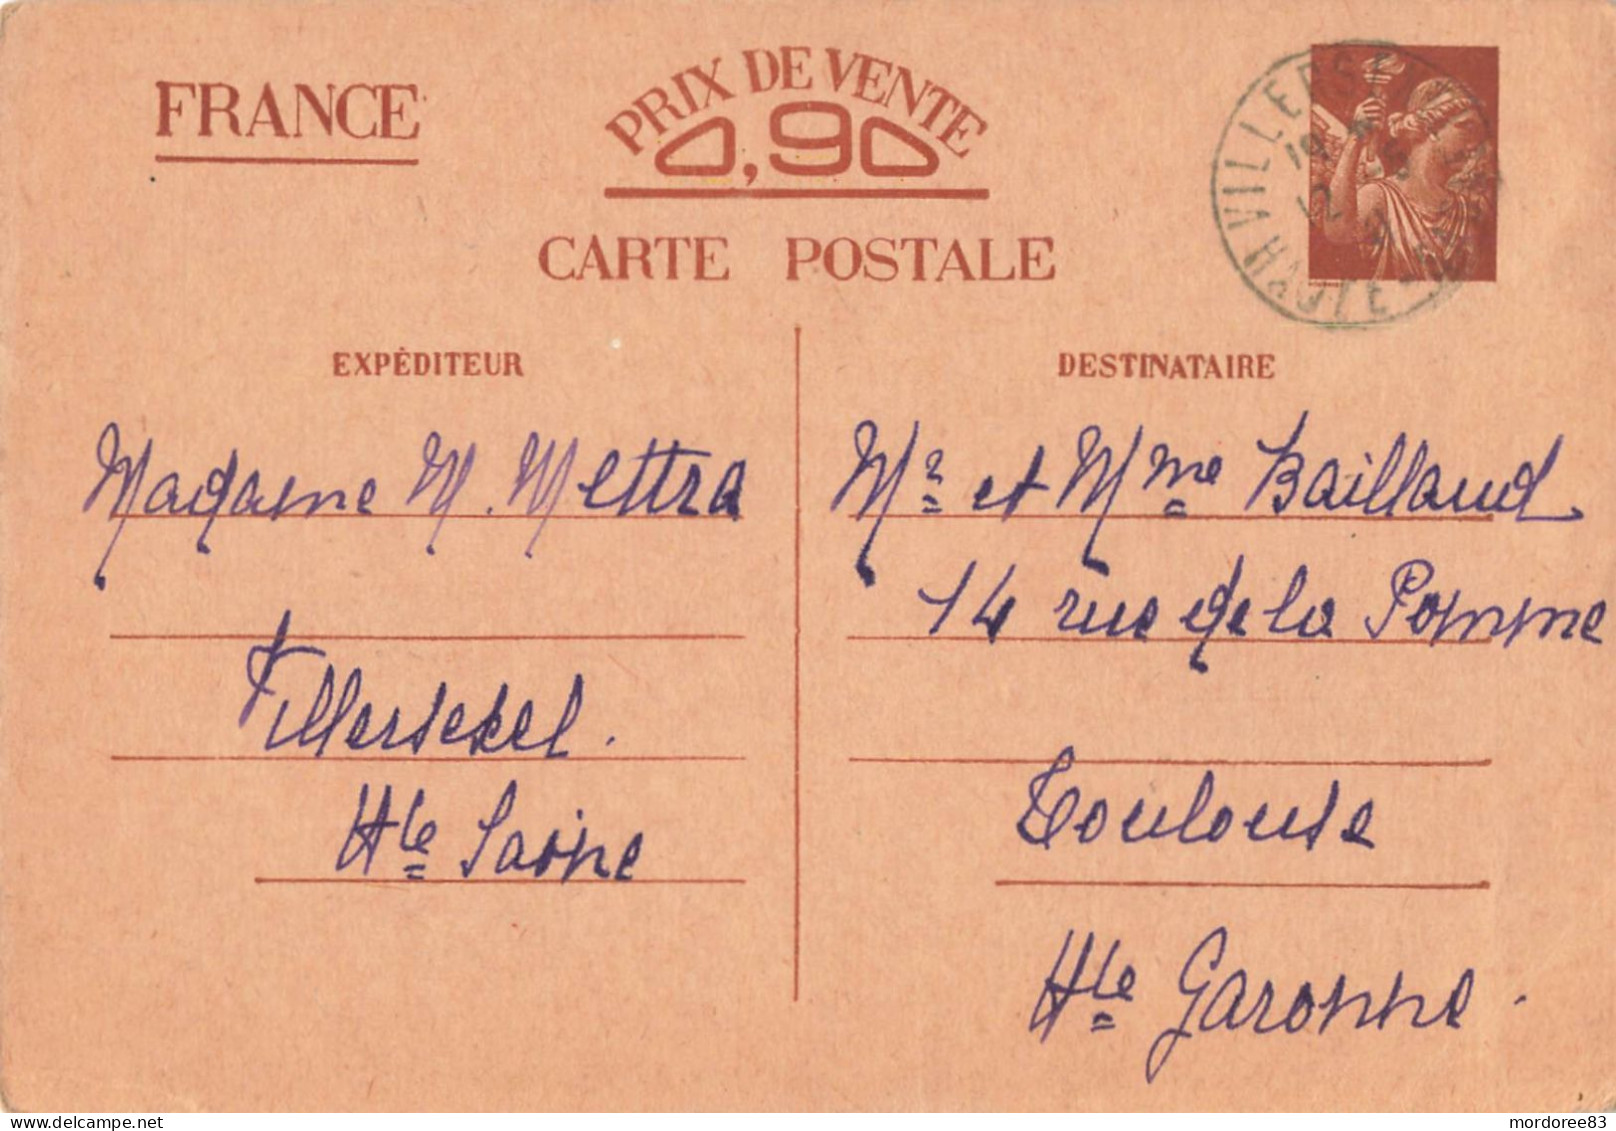 FRANCE
PRIX DE VENTE
0,90
CARTE POSTALE
EXPÉDITEUR
Madame M. Mettra
Villersexel.
Hte Saône
DESTINATAIRE
Mr et Mme Baillaud
14 rue de la Pomme
Toulouse
Hte Garonne.
mordoree83